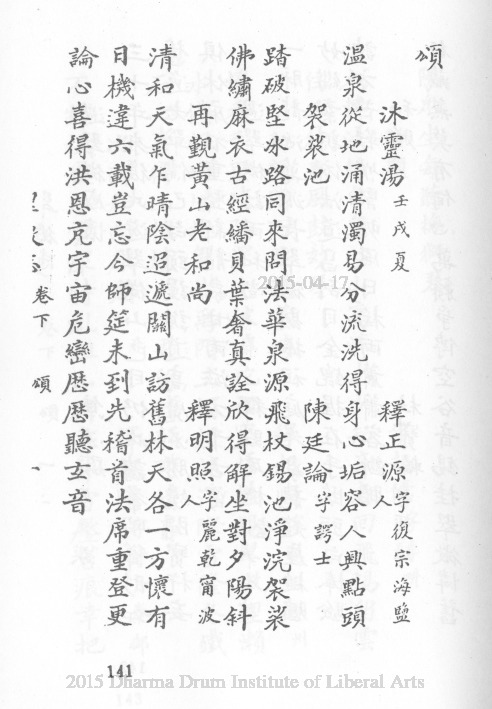 頌
沐靈湯 壬戌夏 釋正源 字復宗海鹽人
溫泉從地涌清濁易分流洗得身心垢容人興點頭
袈裟池 陳廷論 字諤士
踏破堅冰路同來問法華泉源飛杖錫池淨浣袈裟
佛繡麻衣古經繙貝葉奢真詮欣得解坐對夕陽斜
再觀黃山老和尚 釋明照 字麗乾甯波人
清和天氣乍晴陰迢遞關山訪舊林天各一方懷有
日機違六載豈忘今師筵未到先稽首法席重登更
論心喜得洪恩充宇宙危巒歷歷聽玄音
卷下 頌 一
141
2015-04-17
2015 Dharma Drum Institute of Liberal Arts